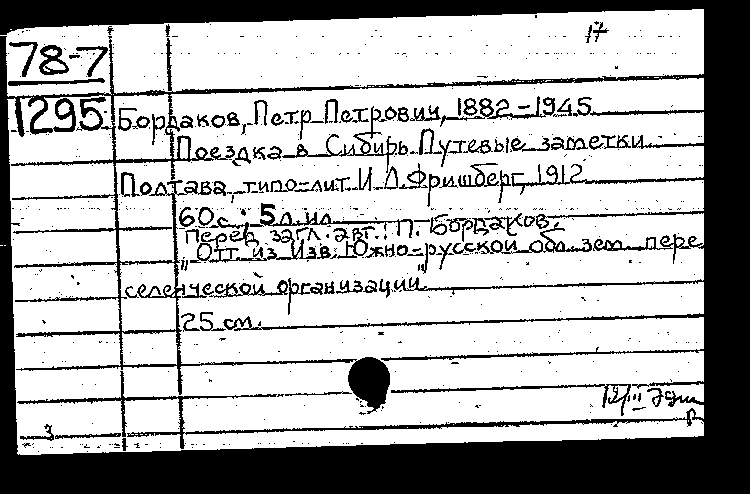 17
78-7
1295
Бордаков, Петр Петрович, 1882-1945.
Поездка в Сибирь. Путевые заметки.
Полтава, типо-лит. И.Л.Фришберг, 1912.
60с.; 5л.ил.
Перед загл. авт.: П. Бордаков.
"Отт. из Изв. Южно-русской обл. зем. пере
селенческой организации"
25 см.
12/III
3